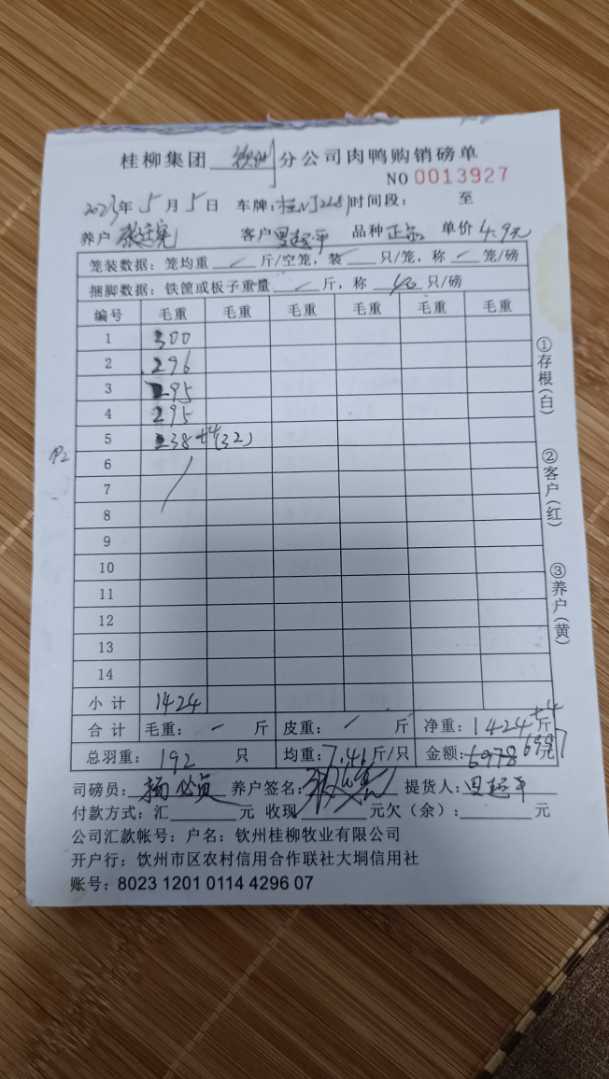 桂柳集团 钦州 分公司肉鸭购销磅单
NO 0013927
2023年 5月 5日 车牌: 时间段: 至
养户 客户 品种 正品 单价 4.9元
笼装数据: 笼均重 斤/空笼, 装 只/笼, 称 笼/磅
捆脚数据: 铁筐或板子重量 斤, 称 40 只/磅
编号 毛重 毛重 毛重 毛重 毛重 毛重
1 300
2 296
3 295
4 295
5 238 +4 (32)
6
7
8
9
10
11
12
13
14
小计 1424
合计 毛重: 斤 皮重: 斤 净重: 1424 +4 斤
总羽重: 192 只 均重: 7.41 斤/只 金额: 6978 6997 元
司磅员: 养户签名: 提货人:
付款方式: 汇 元 收现 元欠(余): 元
公司汇款帐号: 户名: 钦州桂柳牧业有限公司
开户行: 钦州市区农村信用合作联社大垌信用社
账号: 8023 1201 0114 4296 07
①存根(白)
②客户(红)
③养户(黄)